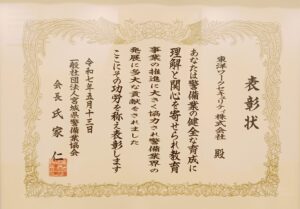 表彰状
東洋ワークセキュリティ株式会社
殿
あなたは警備業の健全な育成に
理解と関心を寄せられ教育
事業の推進に大きく協力され警備業界の
発展に多大な貢献をされました
ここにその功労を称え表彰します
令和七年五月十三日
一般社団法人宮城県警備業協会
会長 氏家 仁